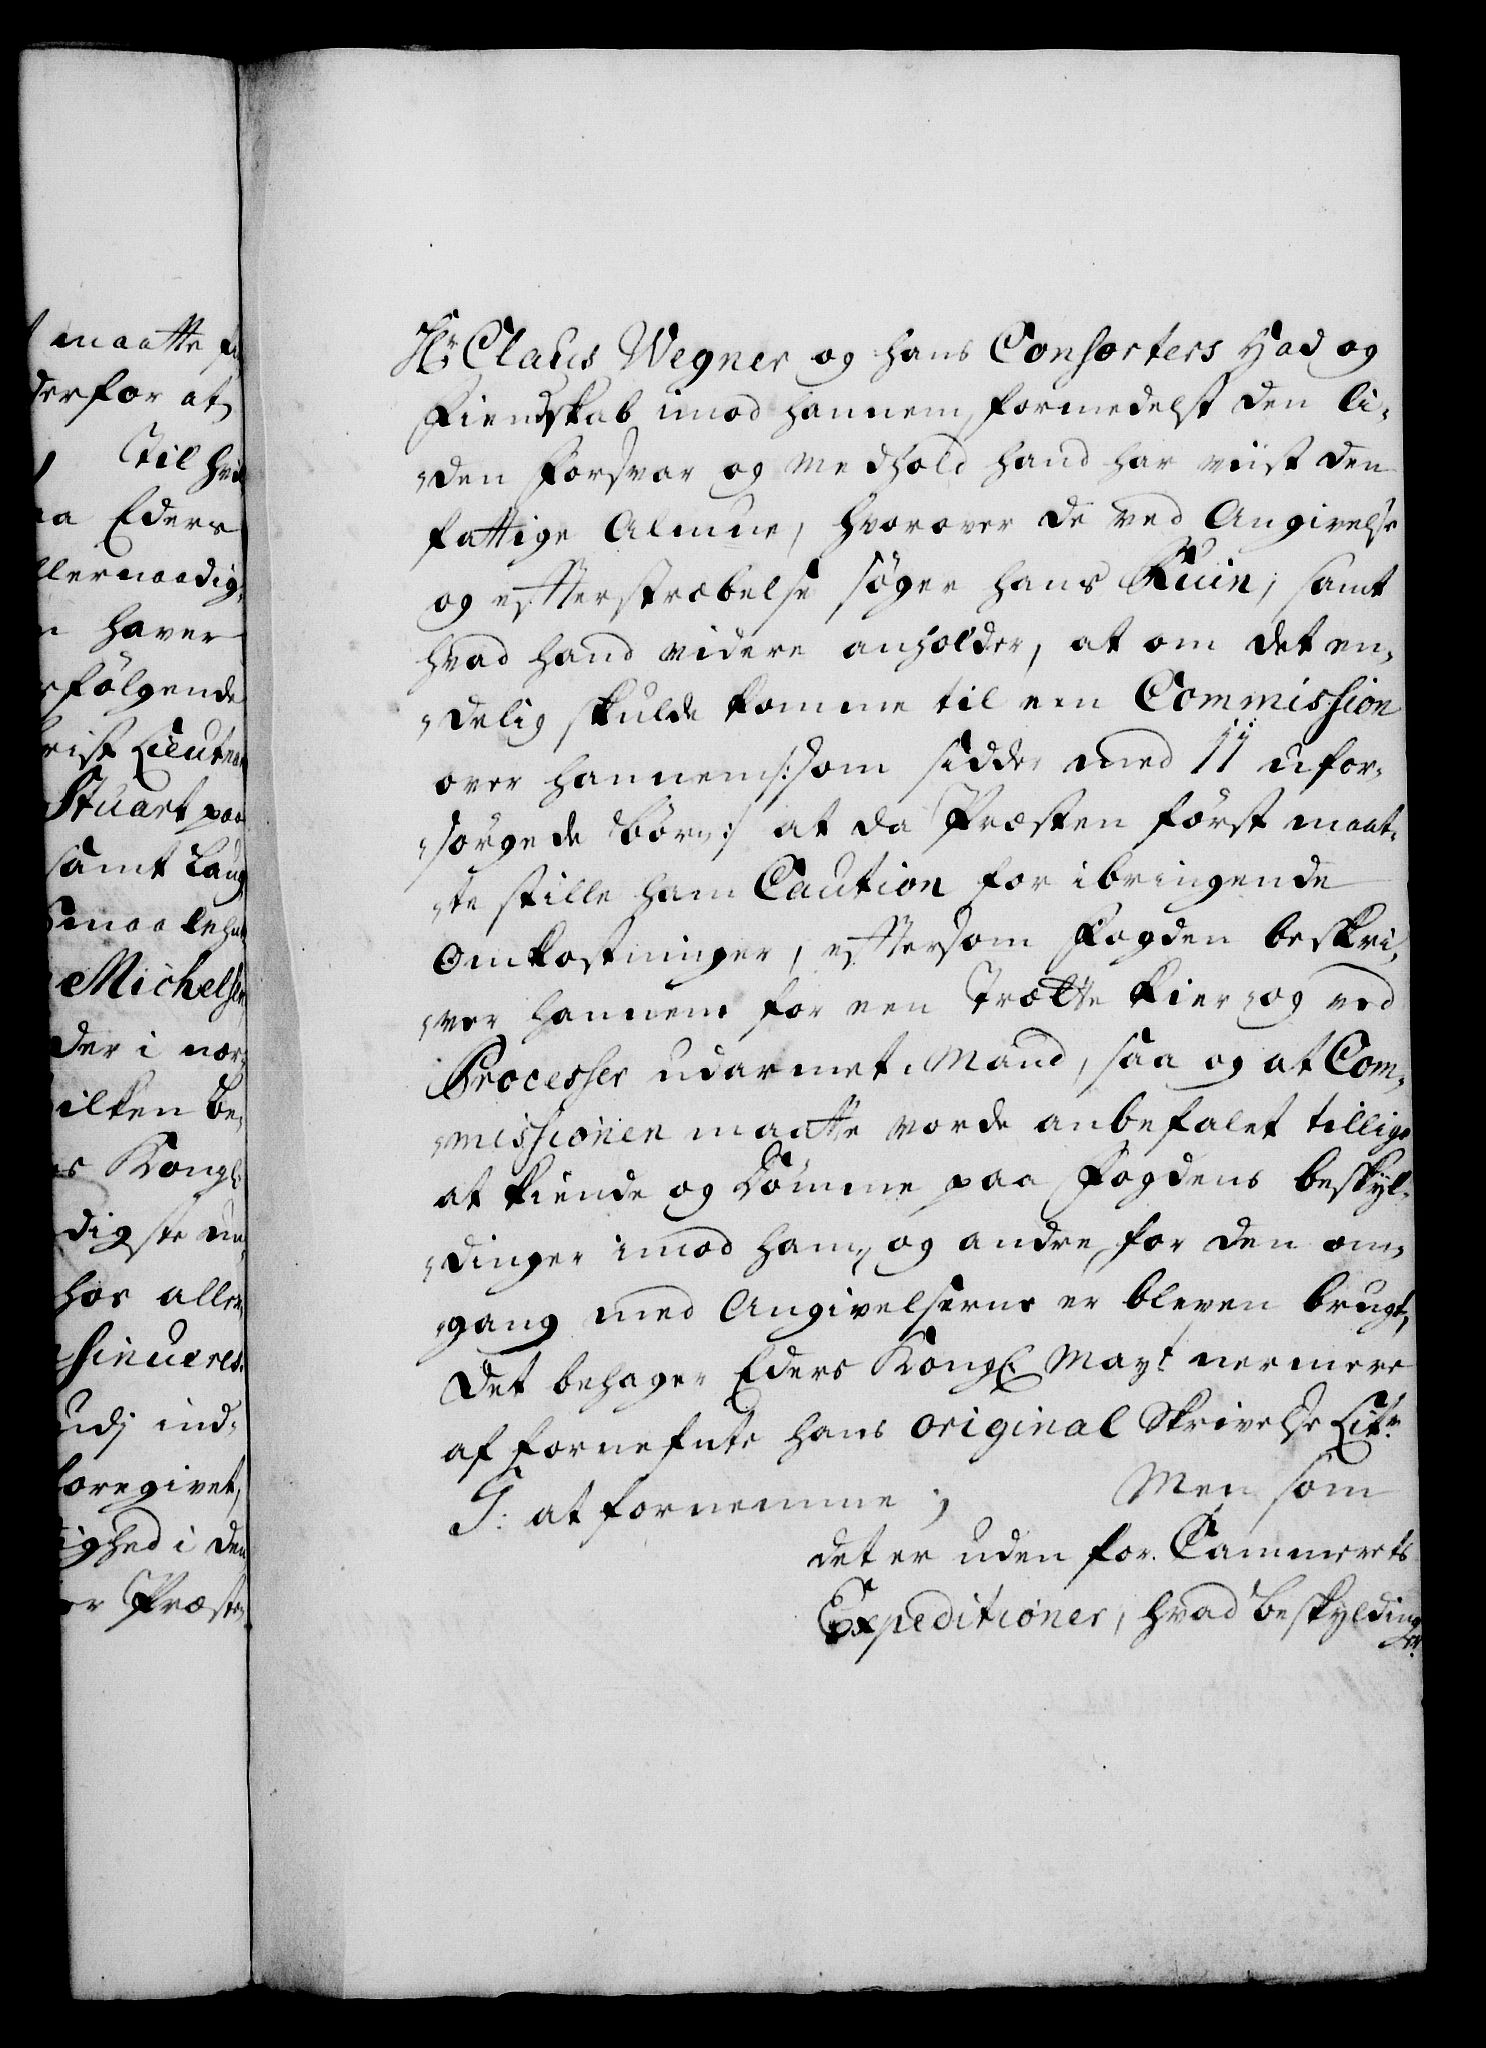 maatte
derfor at
Til
Eders
llernaadig,,
haver
følgende
rist Lieutnan
Stuart paa
samt Laug
Michelsen
der i nær,,
ilken be,,
s Kongl:
digste un,,
hos aller,,
sinueres.
udj ind,,
foregivet,
ighed i den
er Præste,,
Hr Claus Wegner og hans Consorters Had og
Fiendskab imod hannem, formedelst den li,,
,,den Forsvar og Medhold hand har viist den
fattige Almue, hvorover de ved Angivelse
og efterstræbelse søger hans Ruin, samt
hvad hand videre anholder, at om det en,,
,,delig skulde komme til een Commission
over hannem /:som sidder med 11 ufor,,
,,sørgede Børn:/ at da Præsten først maat,,
,,te stille ham Caution for ibringende
Omkostninger, eftersom Fogden beskri,,
,,ver hannem for een Trætte kier og ved
Processer udarmet Mand, saa og at Com,,
,,missionen maatte vorde anbefalet tillige
at kiende og dömme paa Fogdens beskyl,,
,,dinger imod ham, og andre for den om,,
,,gang med Angivelserne er bleven brugt,
Det behager Eders Kongl. Mayt nermere
af fornefnte hans original Skrivelse Litr
G: at fornemme; Men som
det er uden for Cammerets
Expeditioner, hvad beskylding
er